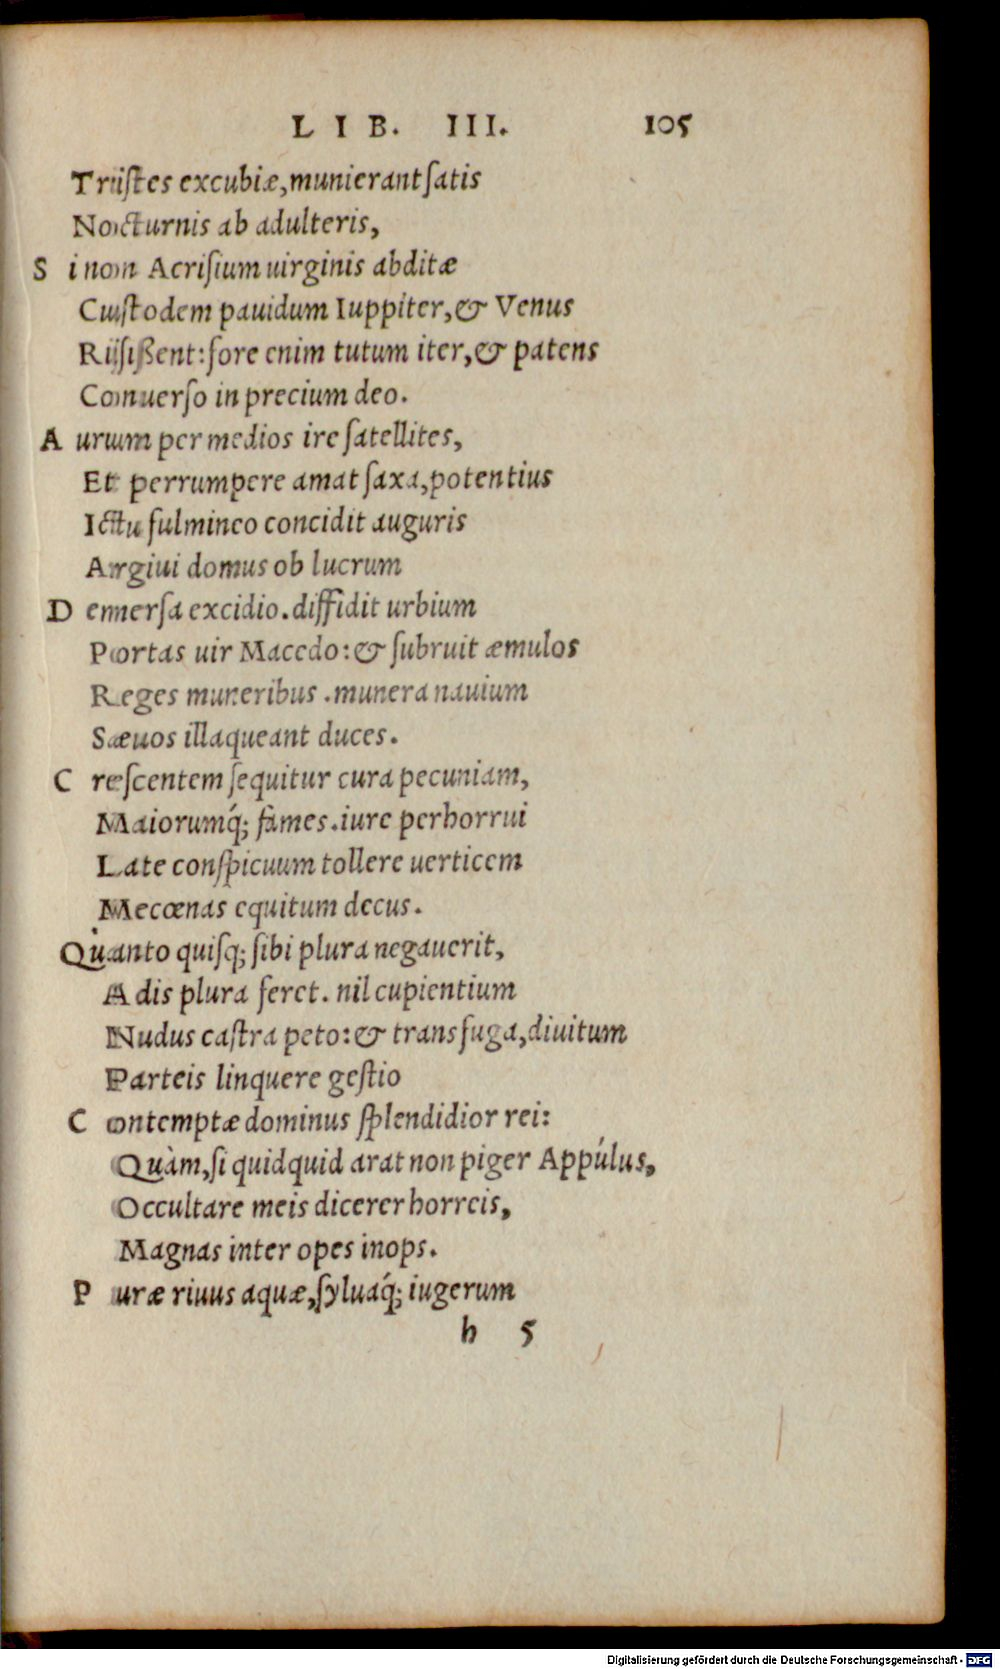 LIB. III. 105
Tristes excubiæ, munierant ſatis
Nocturnis ab adulteris,
S i non Acriſium uirginis abditæ
Cuſtodem pauidum Iuppiter, & Venus
Riſißent: fore enim tutum iter, & patens
Conuerſo in precium deo.
A urum per medios ire ſatellites,
Et perrumpere amat ſaxa, potentius
Ictu fulmineo concidit auguris
Argiui domus ob lucrum
D emerſa excidio. diffidit urbium
Portas uir Macedo: & ſubruit æmulos
Reges muneribus. munera nauium
Sæuos illaqueant duces.
C reſcentem ſequitur cura pecuniam,
Maiorumq́; fames. iure perhorrui
Late conſpicuum tollere uerticem
Mecœnas equitum decus.
Quanto quiſq; ſibi plura negauerit,
A dis plura feret. nil cupientium
Nudus caſtra peto: & transfuga, diuitum
Parteis linquere geſtio
C ontemptæ dominus ſplendidior rei:
Quàm, ſi quidquid arat non piger Appúlus,
Occultare meis dicerer horreis,
Magnas inter opes inops.
P uræ riuus aquæ, ſyluaq́; iugerum
h 5
Digitalisierung gefördert durch die Deutsche Forschungsgemeinschaft - DFG